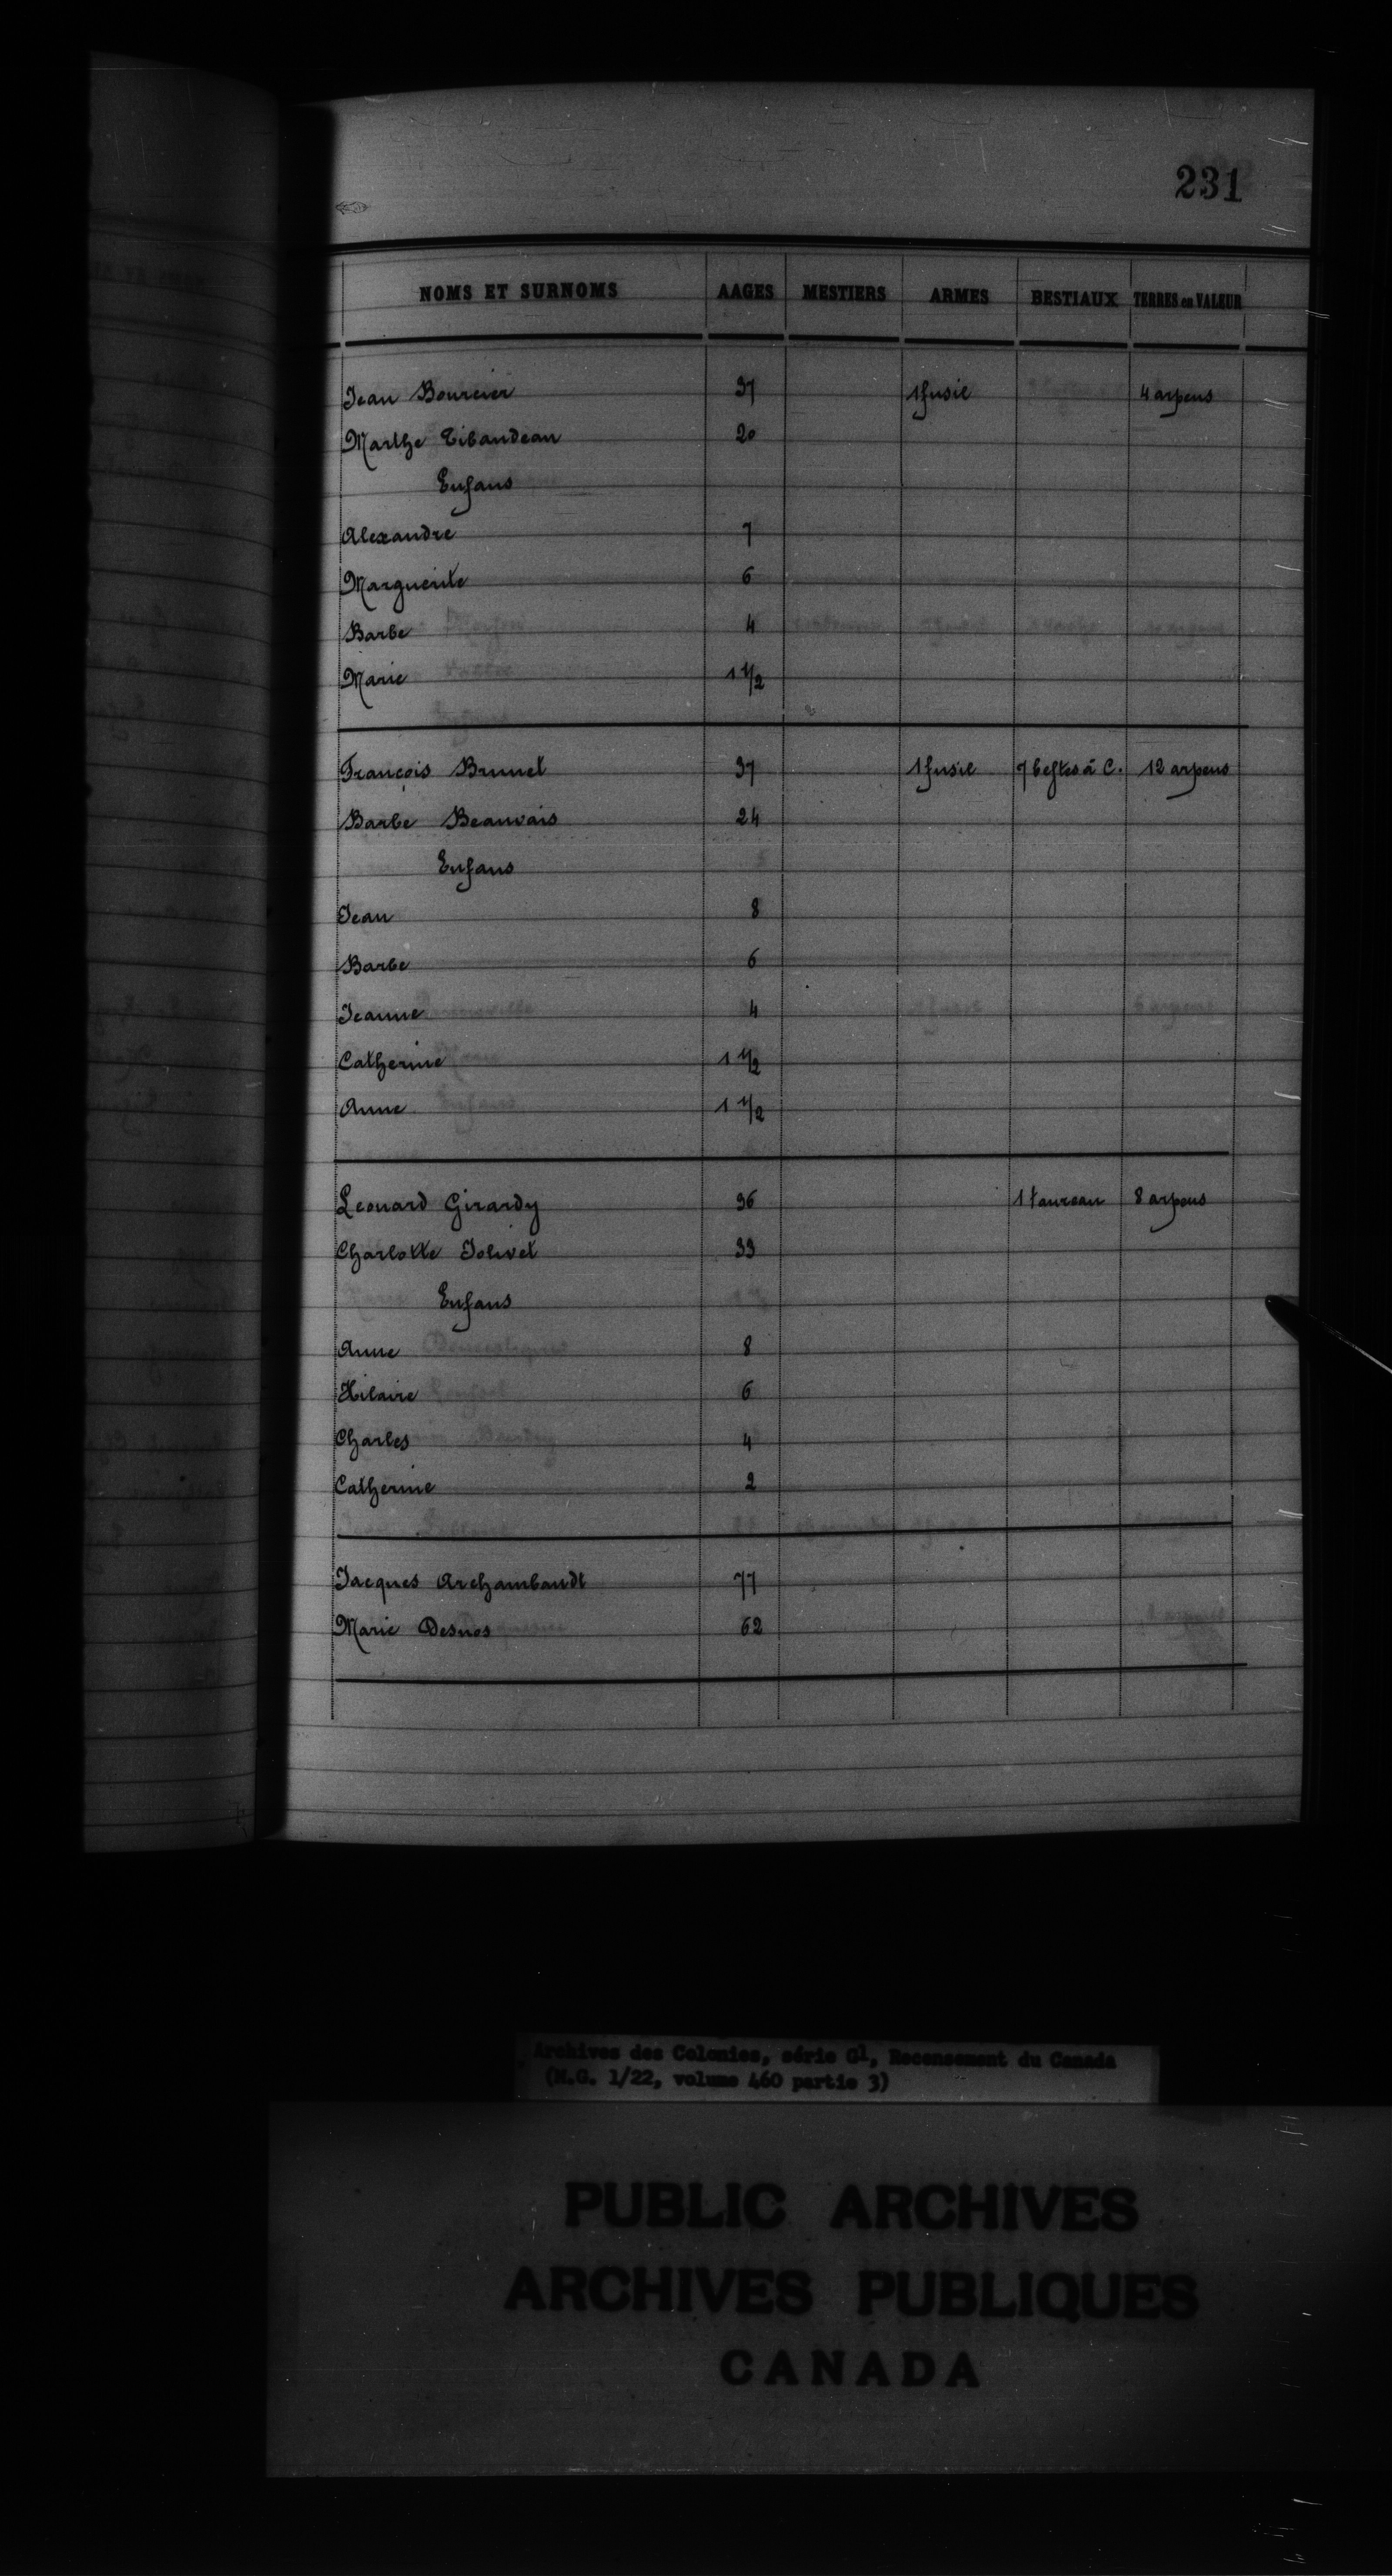 231
NOMS ET SURNOMS AAGES MESTIERS ARMES BESTIAUX TERRES en VALEUR
Jean Bourcier 37 1 fusil 4 arpens
Marthe Tibaudeau 20
Enfans
Alexandre 7
Marguerite 6
Barbe 4
Marie 1 1/2
François Brunet 37 1 fusil 7 bestes à C. 12 arpens
Barbe Beauvais 24
Enfans
Jean 8
Barbe 6
Jeanne 4
Catherine 1 1/2
Anne 1 1/2
Leonard Girardy 36 1 taureau 8 arpens
Charlotte Jolivet 33
Enfans
Anne 8
Hilaire 6
Charles 4
Catherine 2
Jacques Archambaudt 77
Marie Desnos 62
Archives des Colonies, série G1, Recensement du Canada
(M.G. 1/22, volume 460 partie 3)
PUBLIC ARCHIVES
ARCHIVES PUBLIQUES
CANADA